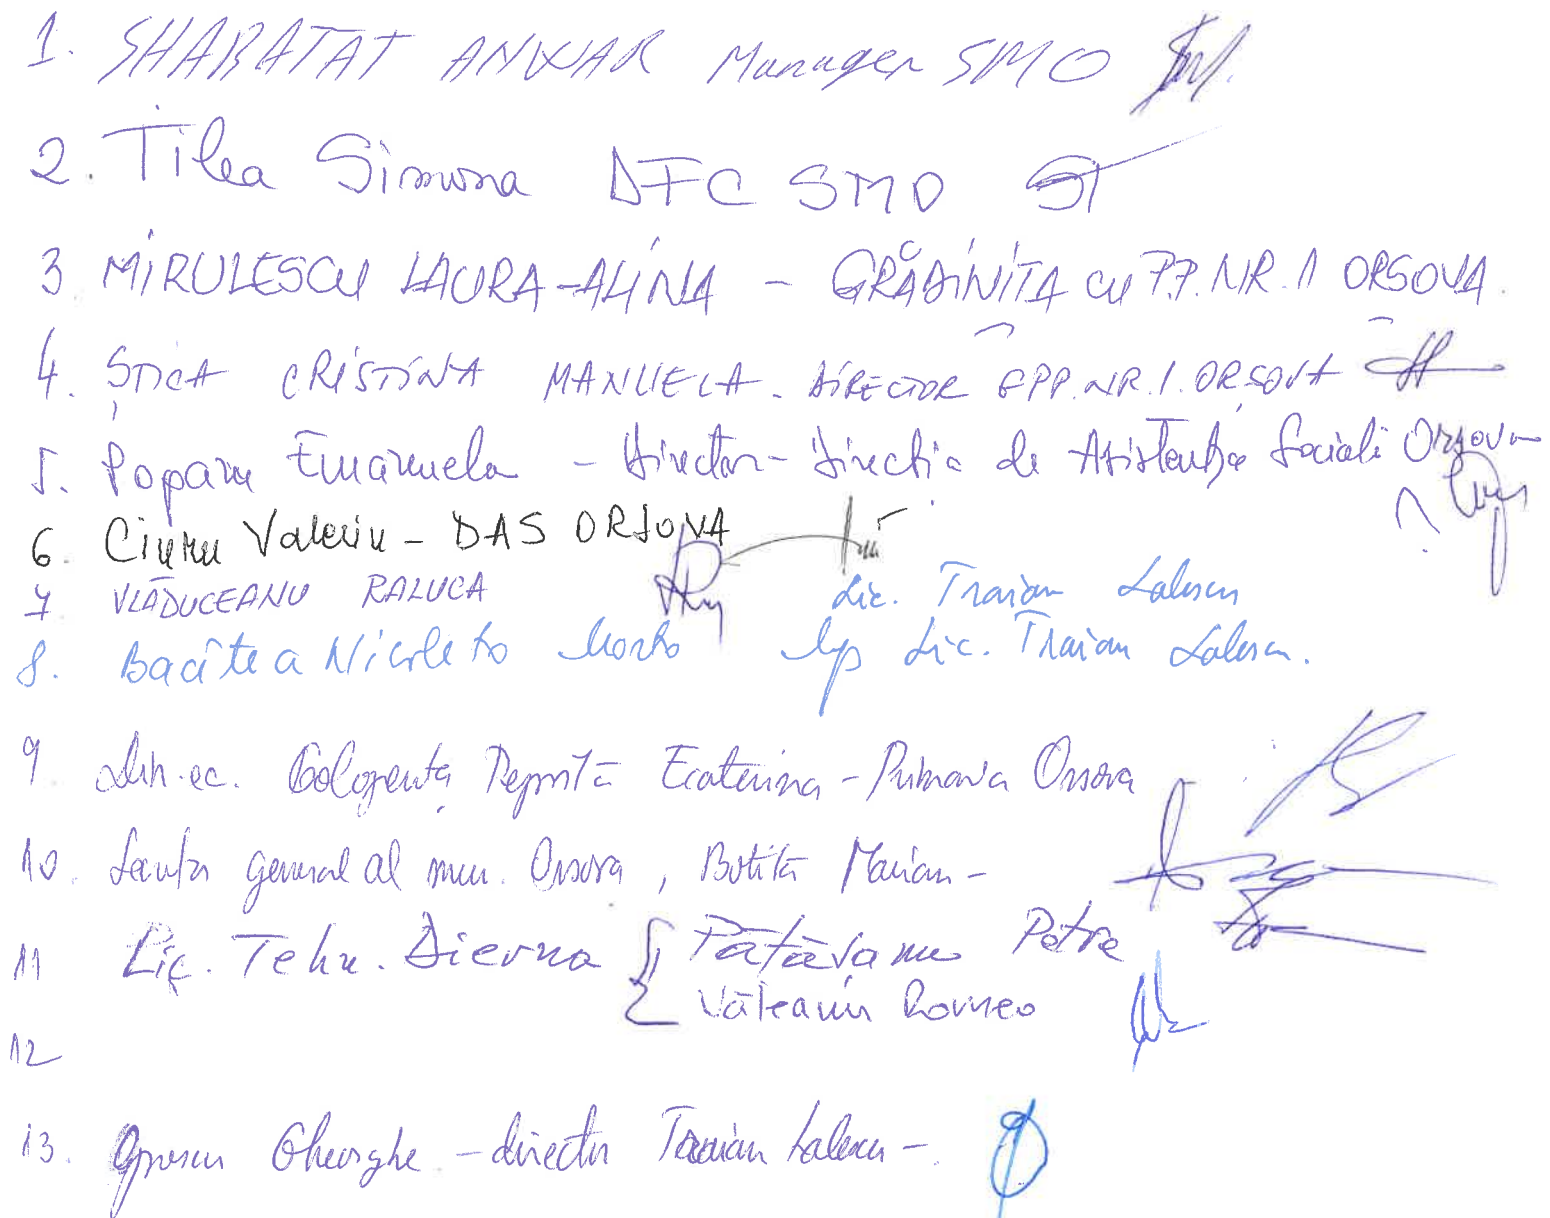 1. SHABATAT ANWAR Manager SMO
2. Tilea Simona DFC SMO
3 MIRULESCU LAURA-ALINA - GRĂDINIȚA CU P.P. NR. 1 ORȘOVA.
4. ȘTICA CRISTINA MANUELA - DIRECTOR GPP. NR. 1. ORȘOVA
5. Popa Emanuela - Director - Direcția de Asistență Socială Orșova
6. Ciucu Valeriu - DAS ORȘOVA
7 VLĂDUCEANU RALUCA Lic. Traian Lalescu
8. Nicoleta Lic. Traian Lalescu.
9 ec. Ecaterina - Primaria Orsova
10. general al mun. Orsova, Botilă Marian -
11 Lic. Tehn. Dierna { Petre
Romeo
12
13. Gheorghe - director Traian Lalescu -